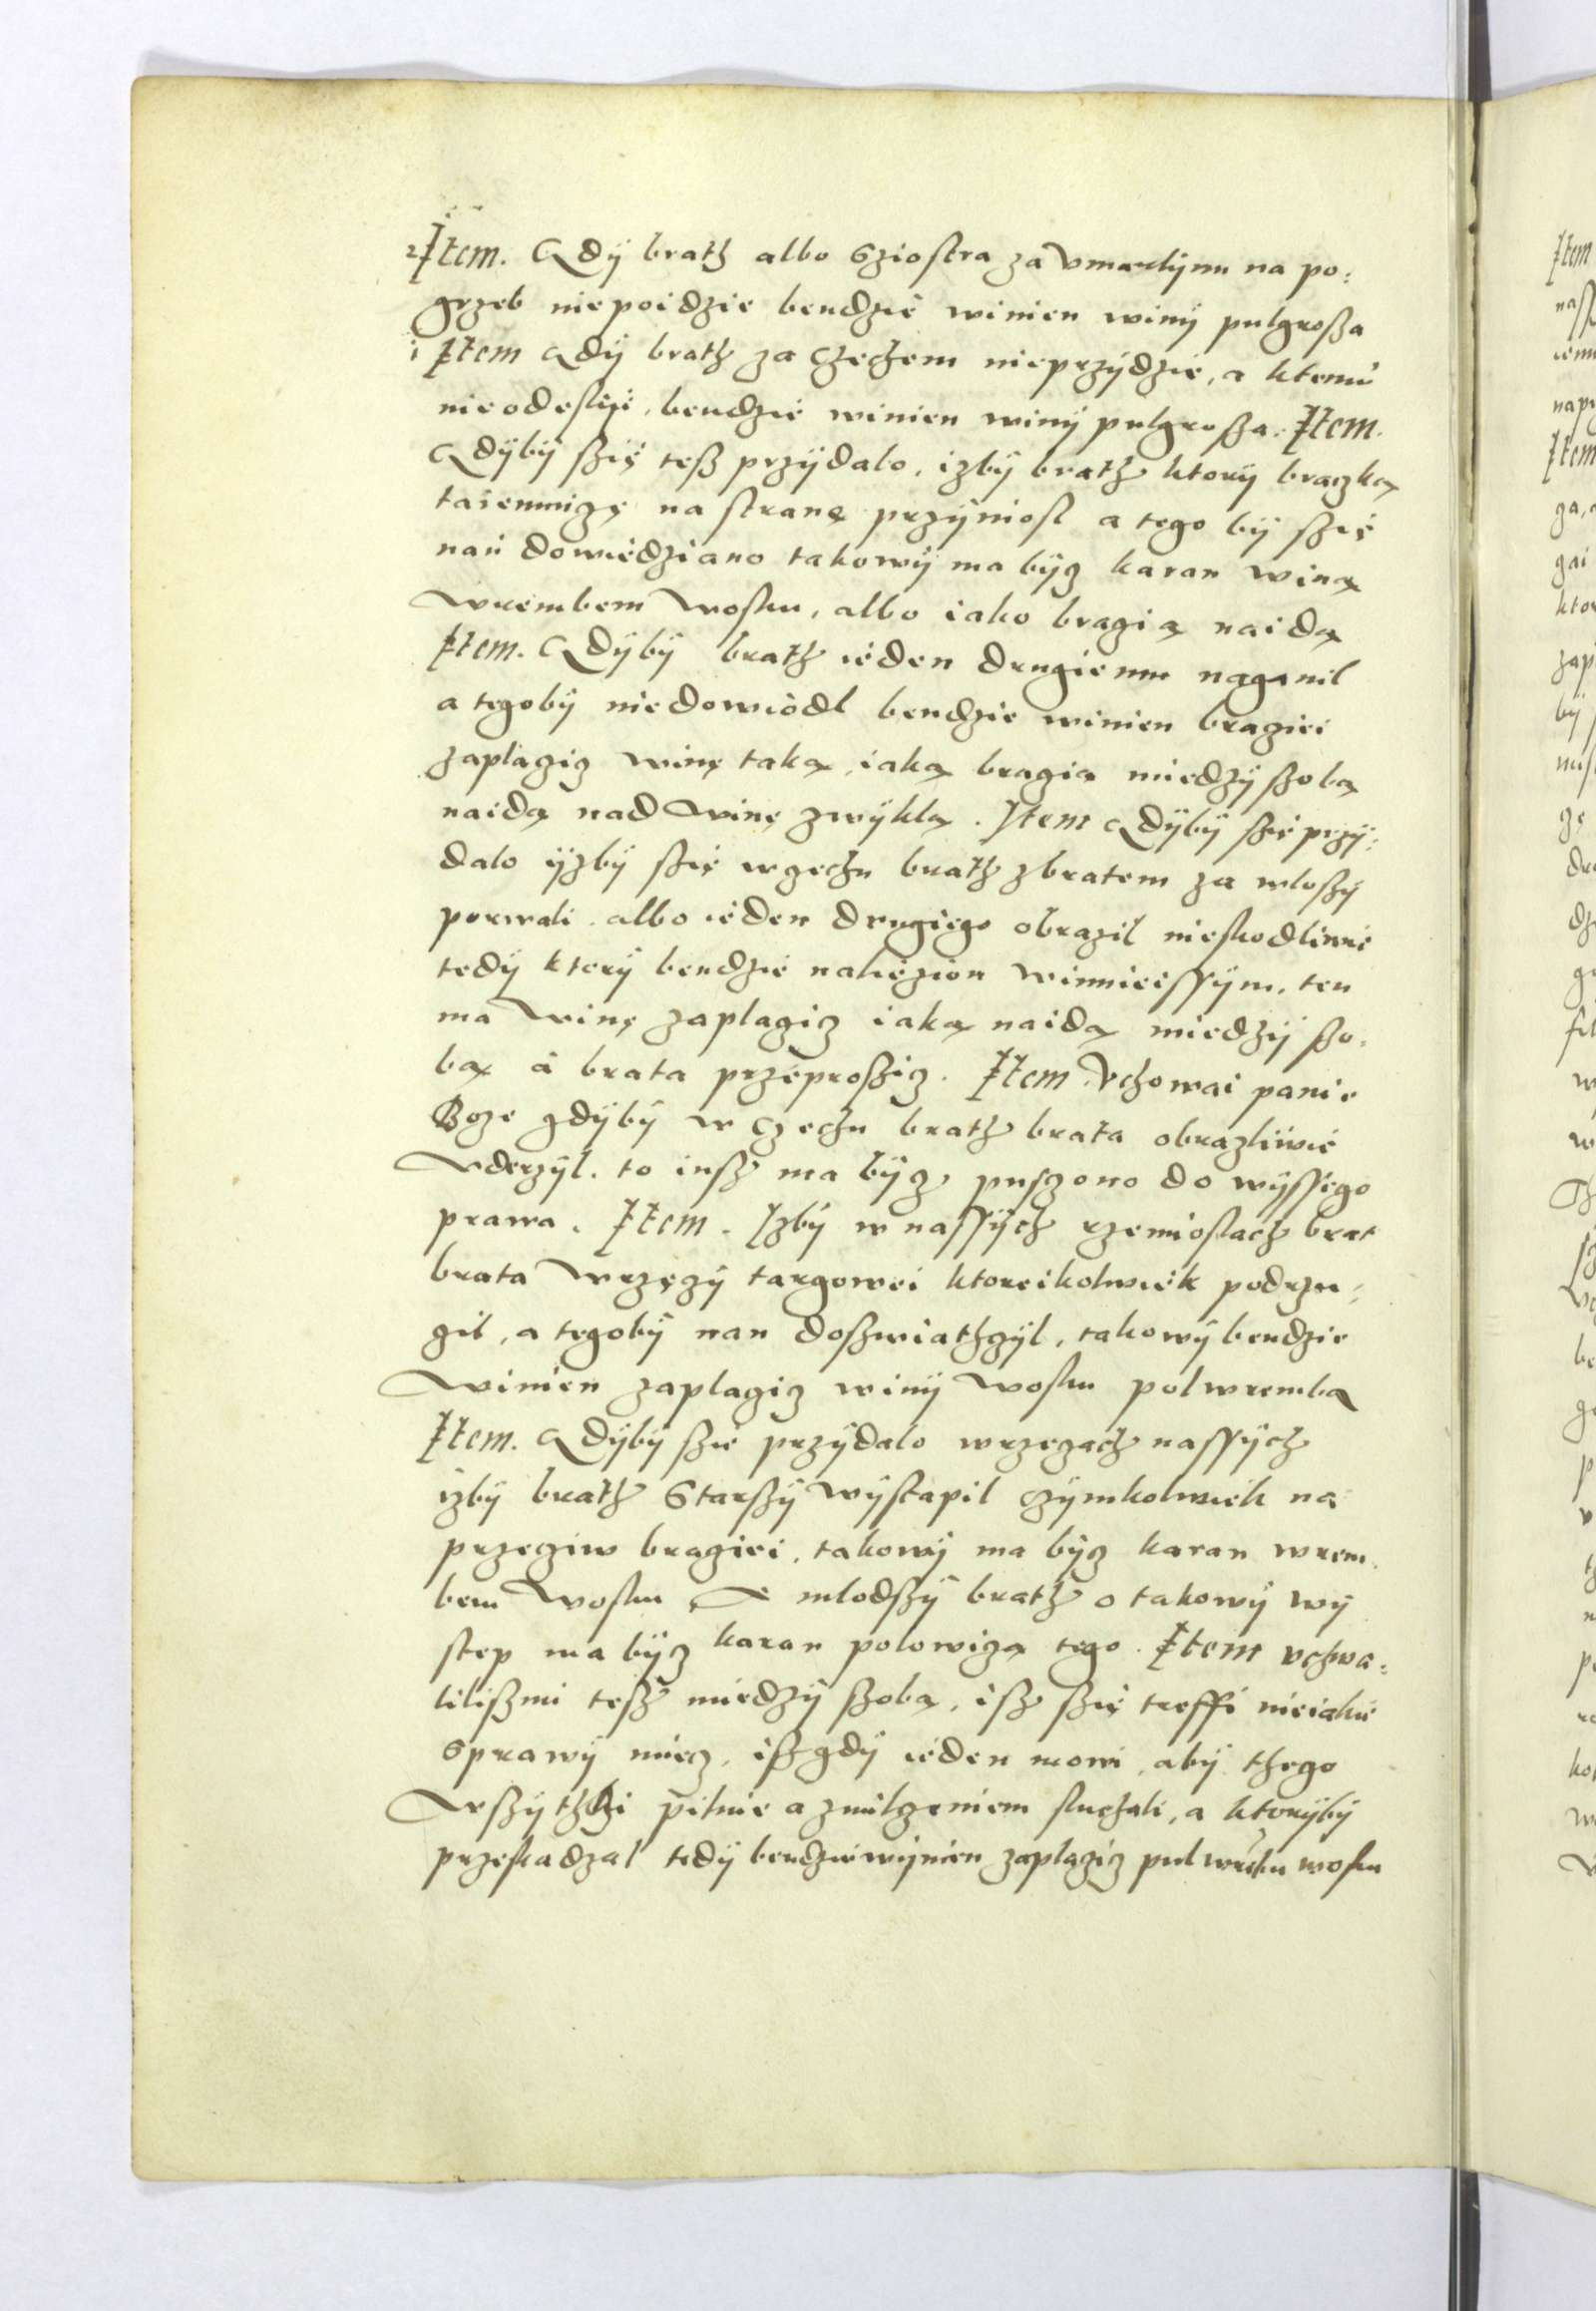 2 Item. Gdÿ brath albo Sziostra za Vmarlÿmu na po:
grzeb niepoidzie bendzie winien winÿ pulgrosza
i Item Gdÿ brath za czechem nieprzÿdzie, a ktemu
nieodeslye, bendzie winien winÿ pulgrosza. Item.
Gdÿbÿ szię tesz przÿdalo, izbÿ brath ktorÿ braczką
taiemnizę na stronę przÿniosl a tego bÿ szię
nań dowiedziano takowÿ ma bÿcz karan winą
wrembem wosku, albo iako bragia naidą
Item. Gdÿbÿ brath ieden drugiemu naganil
a tegobÿ niedowiódl bendzie winien bragiei
zaplagicz winę taką, iaką bragia miedzÿ szobą
naidą nad winę zwÿklą. Item Gdÿbÿ szię przÿ:
dalo ÿzbÿ szię wcechu brath zbratem za wloszÿ
porwali. albo ieden drugiego obrazil nieskodliwie
tedÿ ktorÿ bendzie nalezion winnieissÿm, ten
ma winę zaplagicz iaką naidą miedzÿ szo:
bą á brata przeproszicz. Item Vchowai panie
Boze gdÿbÿ w Czechu brath brata obrazliwie
Vderzÿl. to iusz ma bÿcz pusczono do wÿssego
prawa. Item. Izbÿ w nassÿch rzemioslach brat
brata wrzeczÿ targowei ktoreikolwiek podrzu:
gil, a tegobÿ nan doszwiathczÿl, takowÿ bendzie
winien zaplagicz winÿ wosku polwremba
Item. Gdÿbÿ szie przÿdalo wrzeczach nassÿch
izbÿ brath Starszÿ wÿstapil czÿmkolwiek na
przeciw bragiei, takowÿ ma bÿcz karan wrem
bem wosku A mlodszÿ brath o takowÿ wÿ
step ma bÿcz karan polowiczą tego. Item vchwa:
liliszmi tesz miedzÿ szobą, isz szię treffi nieiakie
Sprawÿ miecz, isz gdÿ ieden mowi, abÿ thego
wszÿthczi pilnie a zmilczeniem sluchali, a ktorÿbÿ
przeskadzal tedÿ bendzie wÿnien zaplagicz pul wosku